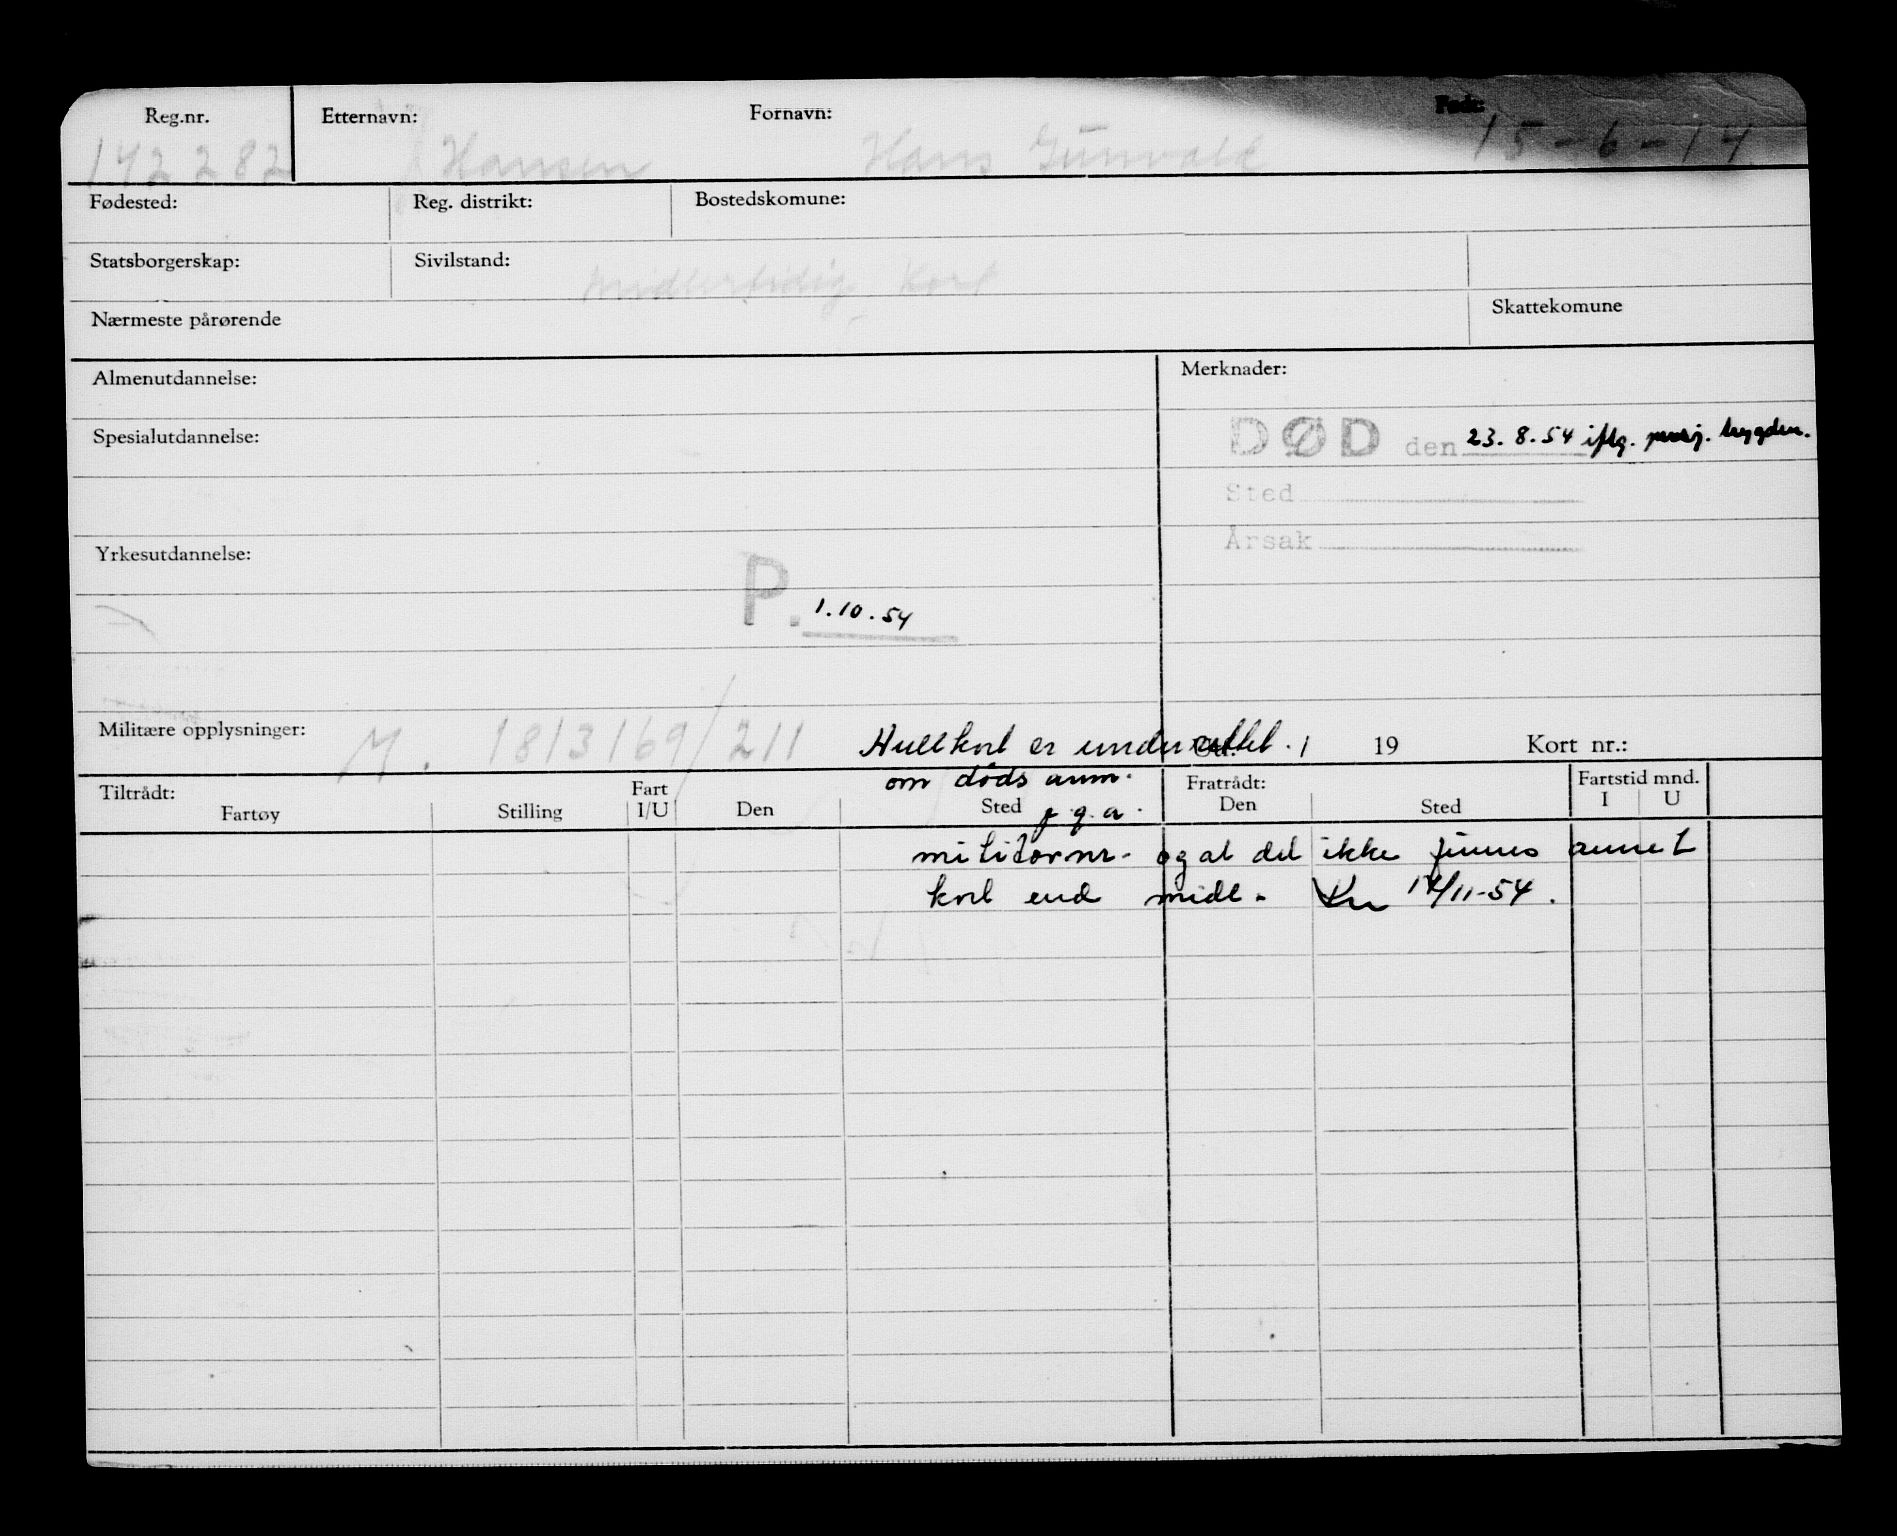 Reg.nr. Etternavn: Fornavn: Født:
142282 Hansen Hans Gunvald 15-6-14
Fødested: Reg. distrikt: Bostedskomune:
Statsborgerskap: Sivilstand:
Midlertidig Kort
Nærmeste pårørende Skattekomune
Almenutdannelse: Merknader:
Spesialutdannelse: DØD den 23.8.54 iflg. trygden.
Sted
Årsak
Yrkesutdannelse:
P. 1.10.54
Militære opplysninger: M. 1813169/211 Hullkort er underrettet. / 19 Kort nr.:
om døds anm.
Tiltrådt: Fart Fratrådt: Fartstid mnd.
Fartøy Stilling I/U Den Sted Den Sted I U
p.g.a.
militærnr. og at det ikke finnes annet
kort end midl. 17/11-54.